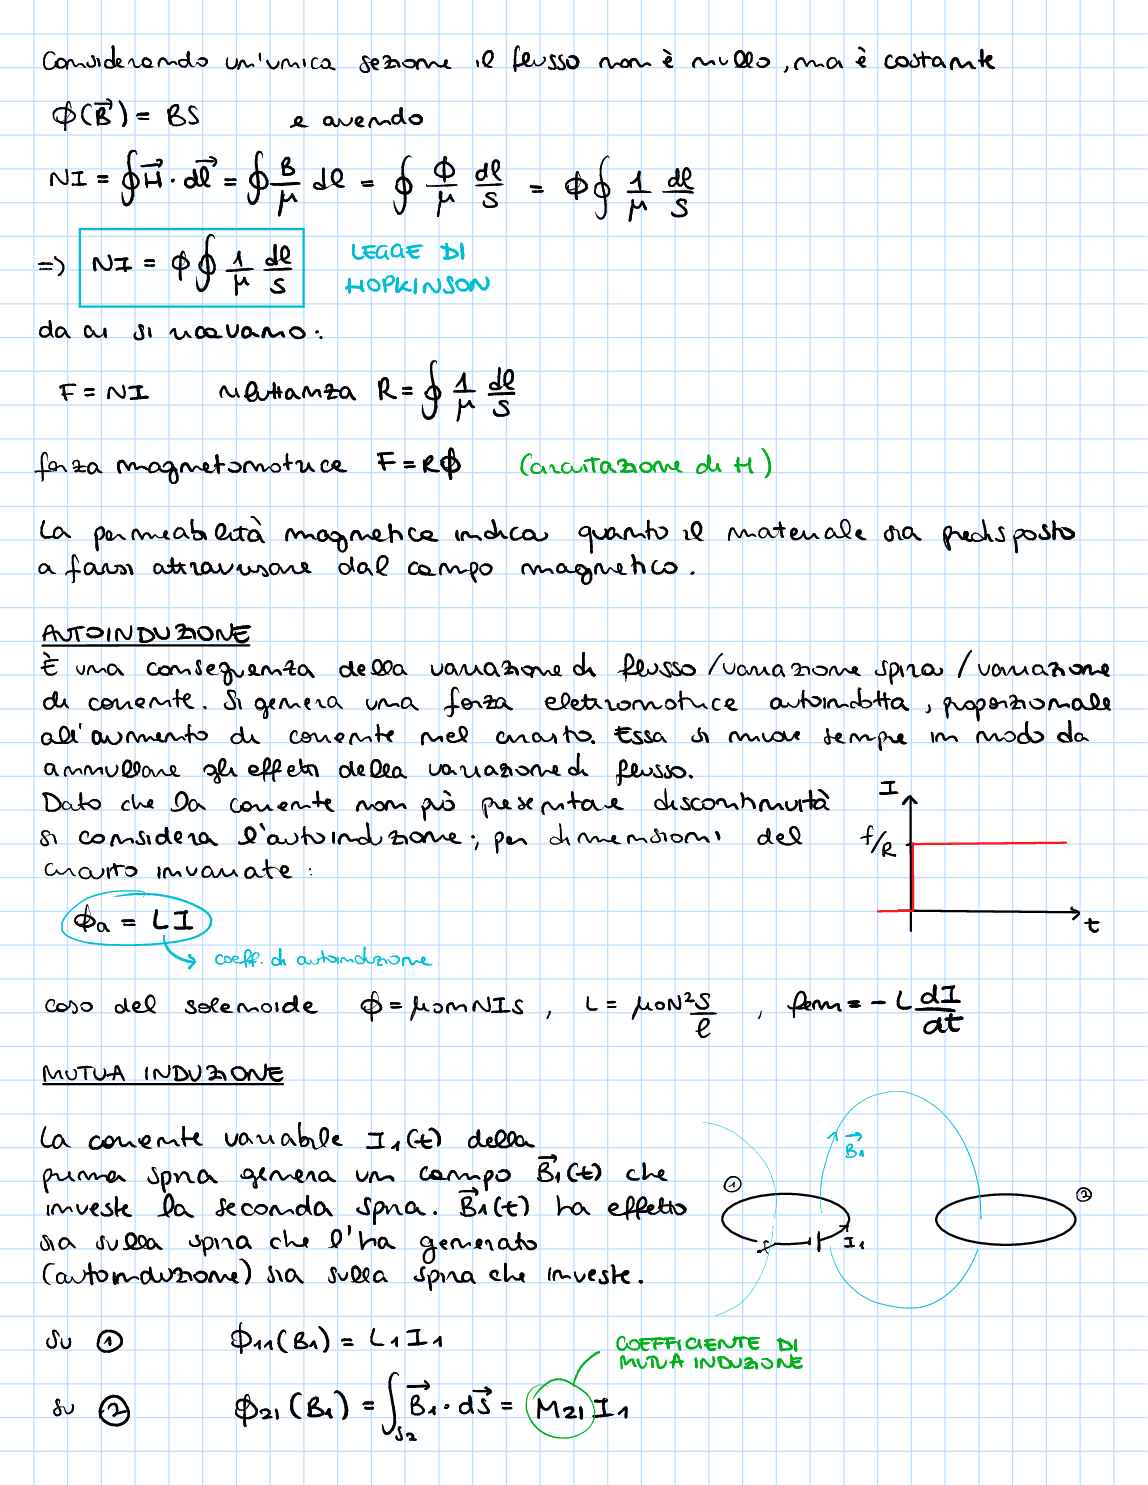 Considerando un'unica sezione il flusso non è nullo, ma è costante
ϕ(B⃗) = BS e avendo
NI = ∮H⃗ · dl⃗ = ∮ B/μ dl = ∮ ϕ/μ dl/S = ϕ∮ 1/μ dl/S
=> NI = ϕ∮ 1/μ dl/S LEGGE DI
HOPKINSON
da cui si ricavano:
F = NI riluttanza R = ∮ 1/μ dl/S
forza magnetomotrice F = Rϕ (circuitazione di H)
La permeabilità magnetica indica quanto il materiale sia predisposto
a farsi attraversare dal campo magnetico.
AUTOINDUZIONE
È una conseguenza della variazione di flusso / variazione spira / variazione
di corrente. Si genera una forza elettromotrice autoindotta, proporzionale
all'aumento di corrente nel circuito. Essa si muove sempre in modo da
annullare gli effetti della variazione di flusso.
Dato che la corrente non può presentare discontinuità
si considera l'autoinduzione; per dimensioni del
circuito invariate:
I
f/R
t
ϕa = LI
coeff. di autoinduzione
caso del solenoide ϕ = μ0nNIS , L = μ0N² S/l , fem = - L dI/dt
MUTUA INDUZIONE
La corrente variabile I1(t) della
prima spira genera un campo B⃗1(t) che
investe la seconda spira. B⃗1(t) ha effetto
sia sulla spira che l'ha generato
(autoinduzione) sia sulla spira che investe.
B⃗1
1
2
I1
su 1 ϕ11(B1) = L1I1
COEFFICIENTE DI
MUTUA INDUZIONE
su 2 ϕ21(B1) = ∫S2 B⃗1 · dS⃗ = M21 I1